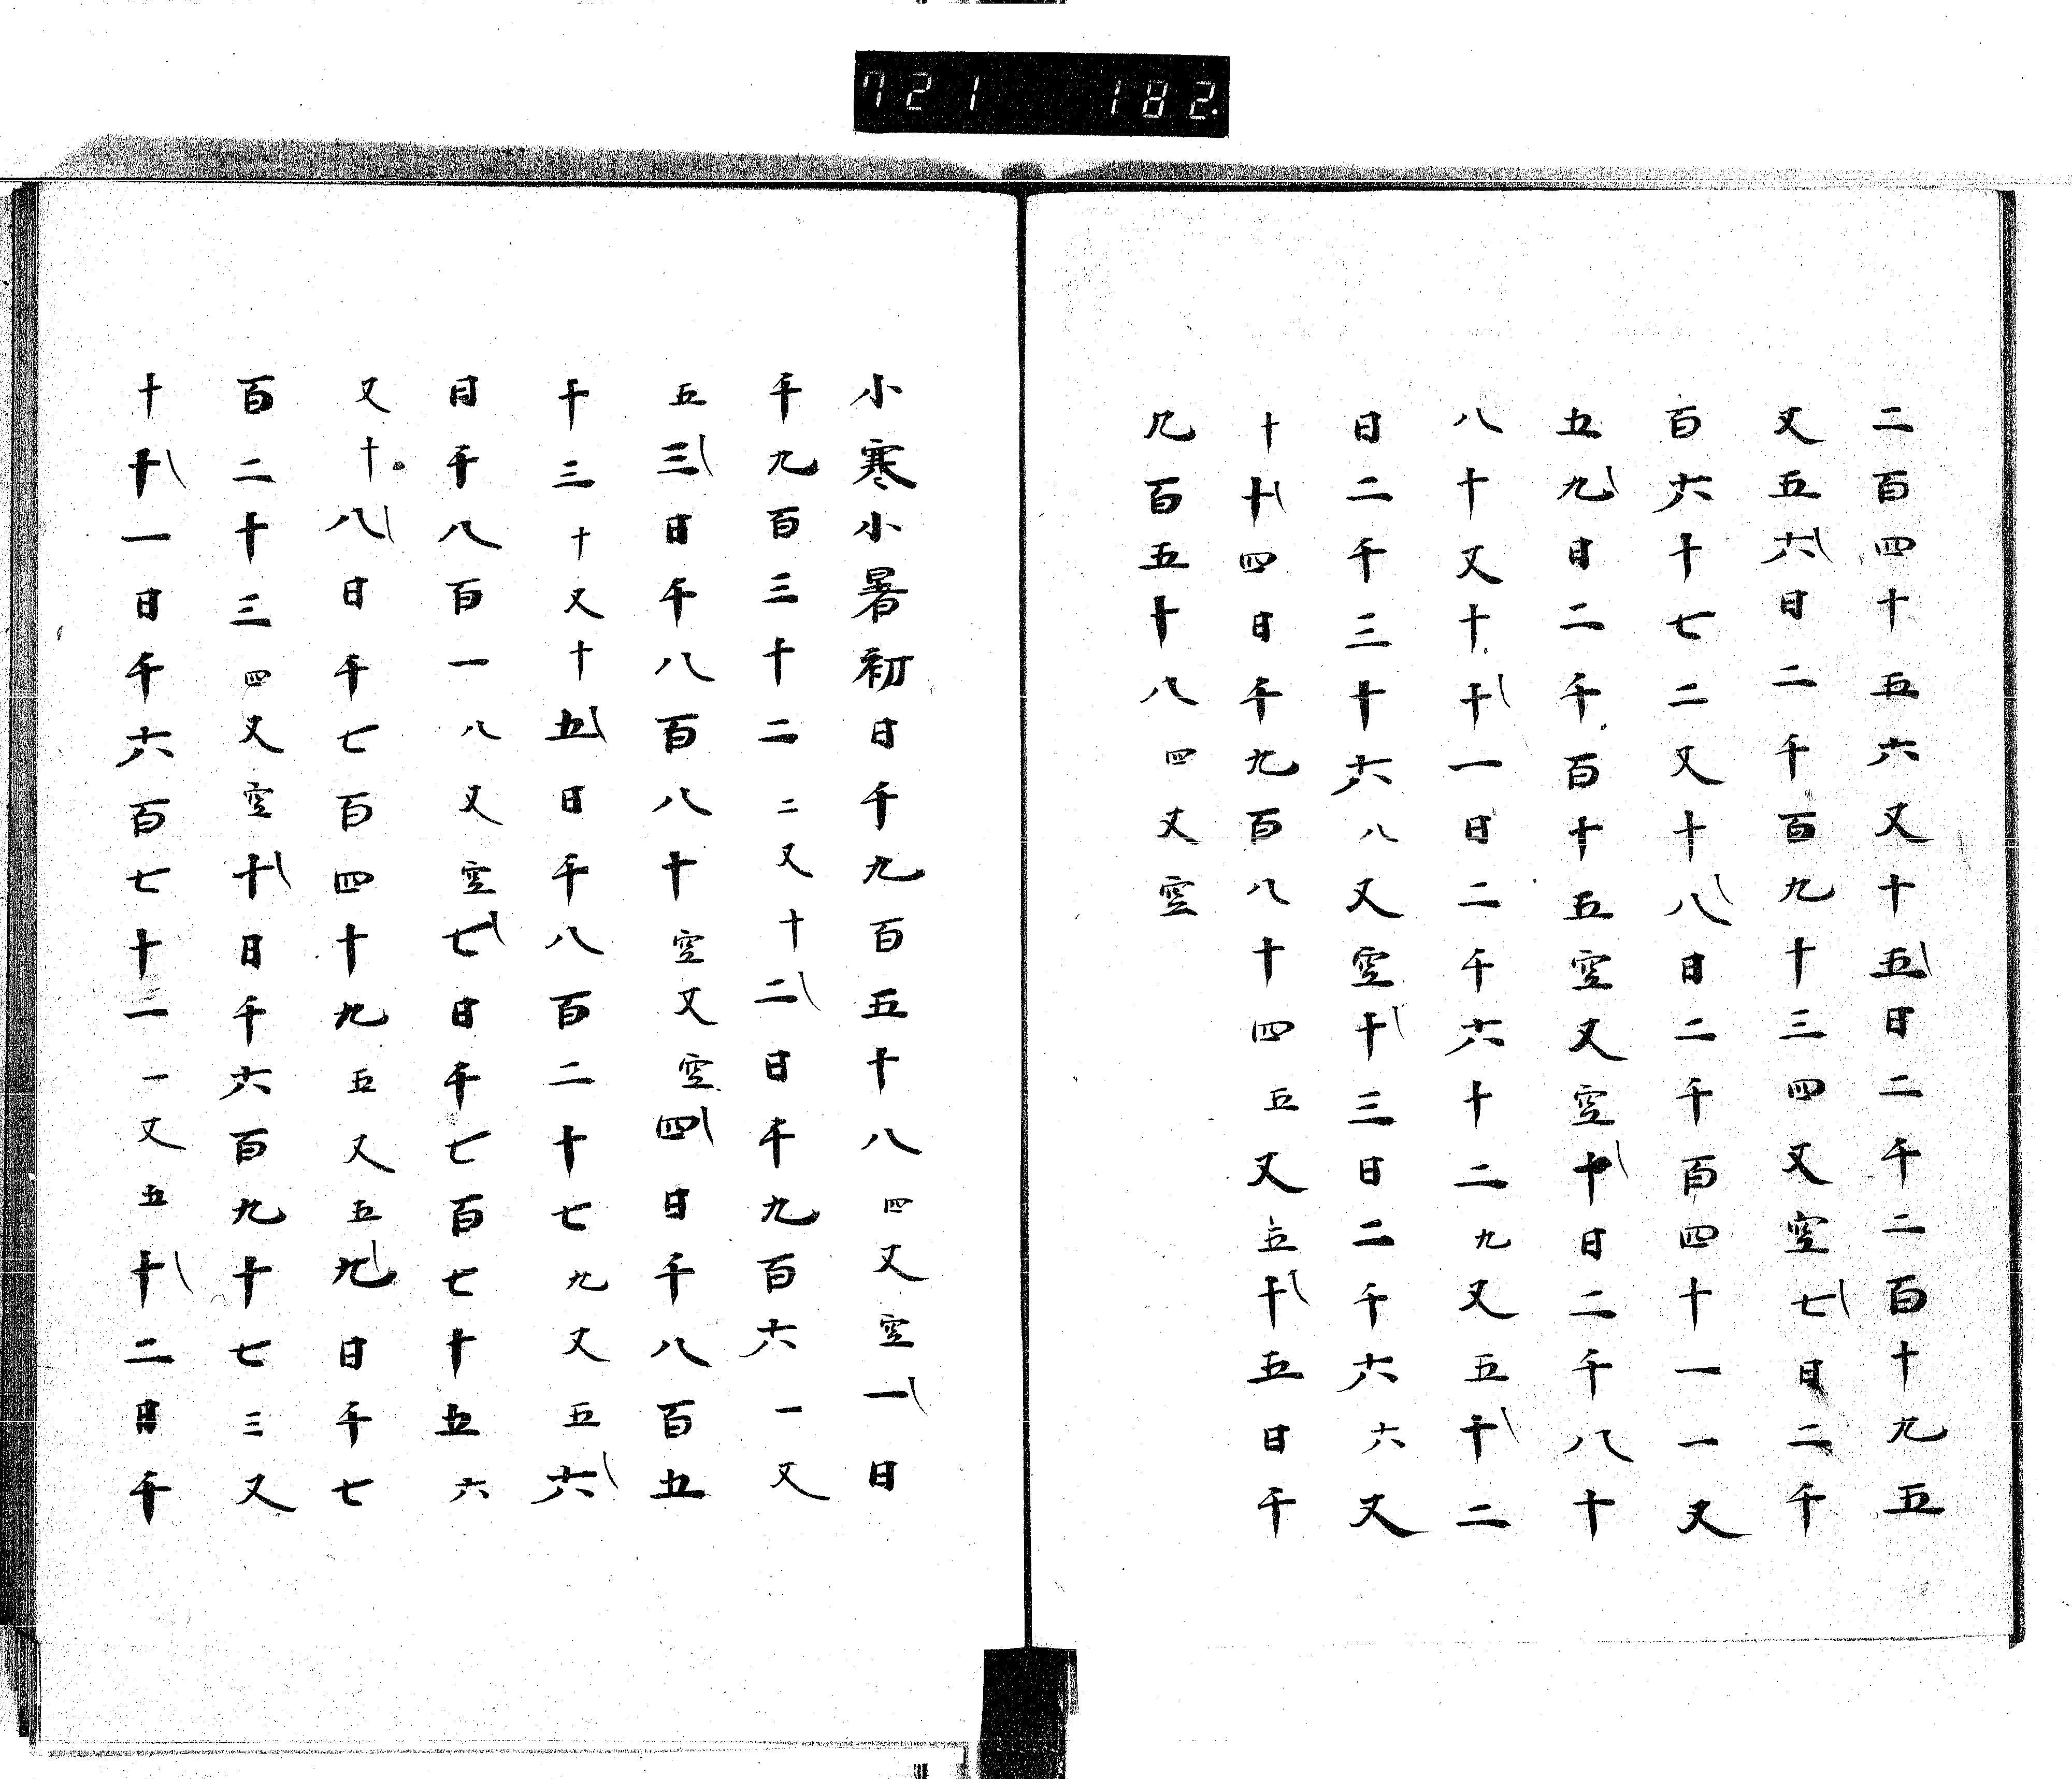 721 182.
二百四十五六又十五日二千二百十九五
又五六日二千百九十三四又空七日二千
百六十七二又十八日二千百四十一一又
五九日二千百十五空又空十日二千八十
八十又十十一日二千六十二九又五十二
日二千三十六八又空十三日二千六六又
十十四日千九百八十四五又五十五日千
九百五十八四又空
小寒小暑初日千九百五十八四又空一日
千九百三十二二又十二日千九百六一又
五三日千八百八十空又空四日千八百五
十三十又十五日千八百二十七九又五六
日千八百一八又空七日千七百七十五六
又十八日千七百四十九五又五九日千七
百二十三四又空十日千六百九十七三又
十十一日千六百七十二一又五十二日千